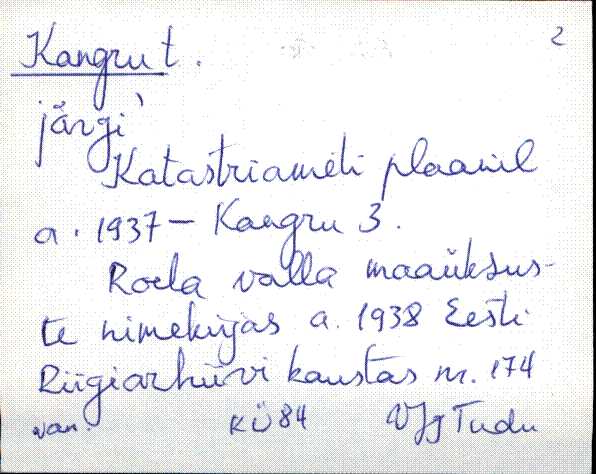 Kangru t. 2
järgi
Katastriameti plaanil
a. 1937 – Kangru 3.
Roela valla maaüksus-
te nimekirjas a. 1938 Eesti
Riigiarhiivi kaustas nr. 174
van. KÜ 84 VJg Tudu